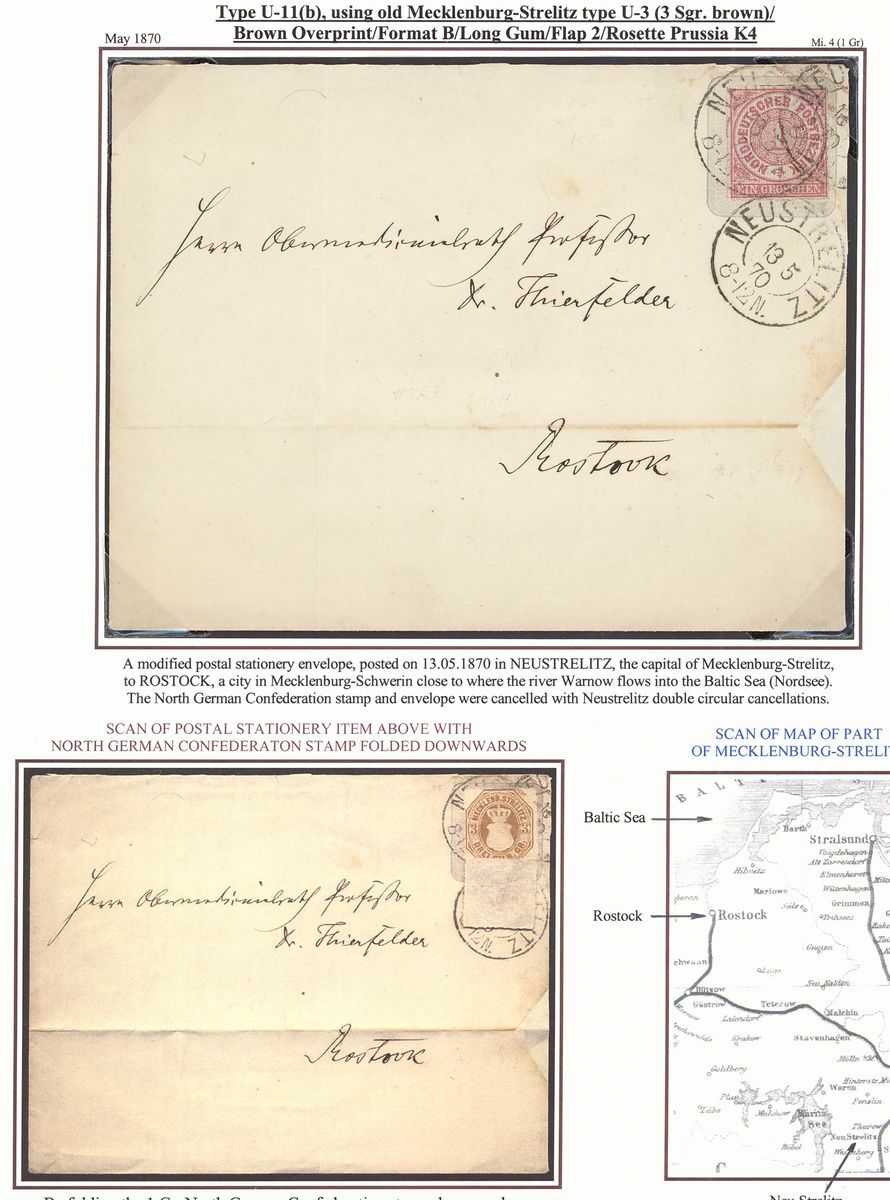 Type U-11(b), using old Mecklenburg-Strelitz type U-3 (3 Sgr. brown)/
Brown Overprint/Format B/Long Gum/Flap 2/Rosette Prussia K4
May 1870
Mi. 4 (1 Gr)
NORDDEUTSCHER POSTBEZIRK
EIN GROSCHEN
NEUSTRELITZ
13 5
70
8-12N.
Herrn Obermedicinalrath Professor
Dr. Thierfelder
Rostock
A modified postal stationery envelope, posted on 13.05.1870 in NEUSTRELITZ, the capital of Mecklenburg-Strelitz,
to ROSTOCK, a city in Mecklenburg-Schwerin close to where the river Warnow flows into the Baltic Sea (Nordsee).
The North German Confederation stamp and envelope were cancelled with Neustrelitz double circular cancellations.
SCAN OF POSTAL STATIONERY ITEM ABOVE WITH
NORTH GERMAN CONFEDERATON STAMP FOLDED DOWNWARDS
MECKLENB. STRELITZ
Herrn Obermedicinalrath Professor
Dr. Thierfelder
Rostock
SCAN OF MAP OF PART
OF MECKLENBURG-STRELIT
Baltic Sea
Rostock
BALT
Barth
Stralsund
Voigdehagen
Alt Zarrendorf
Elmenhorst
Ribnitz
Wittenhagen
Marlow
Sülze
Grimmen
Rostock
Tribsees
Gnoien
chwaan
Lage
Neu Kalden
Bützow
Güstrow
Teterow
Malchin
Lalendorf
Krakow
Stavenhagen
Mölln
Goldberg
Waren
Penzlin
Plau
Lübs
Malchow
Müritz
See
Röbel
Neu Strelitz